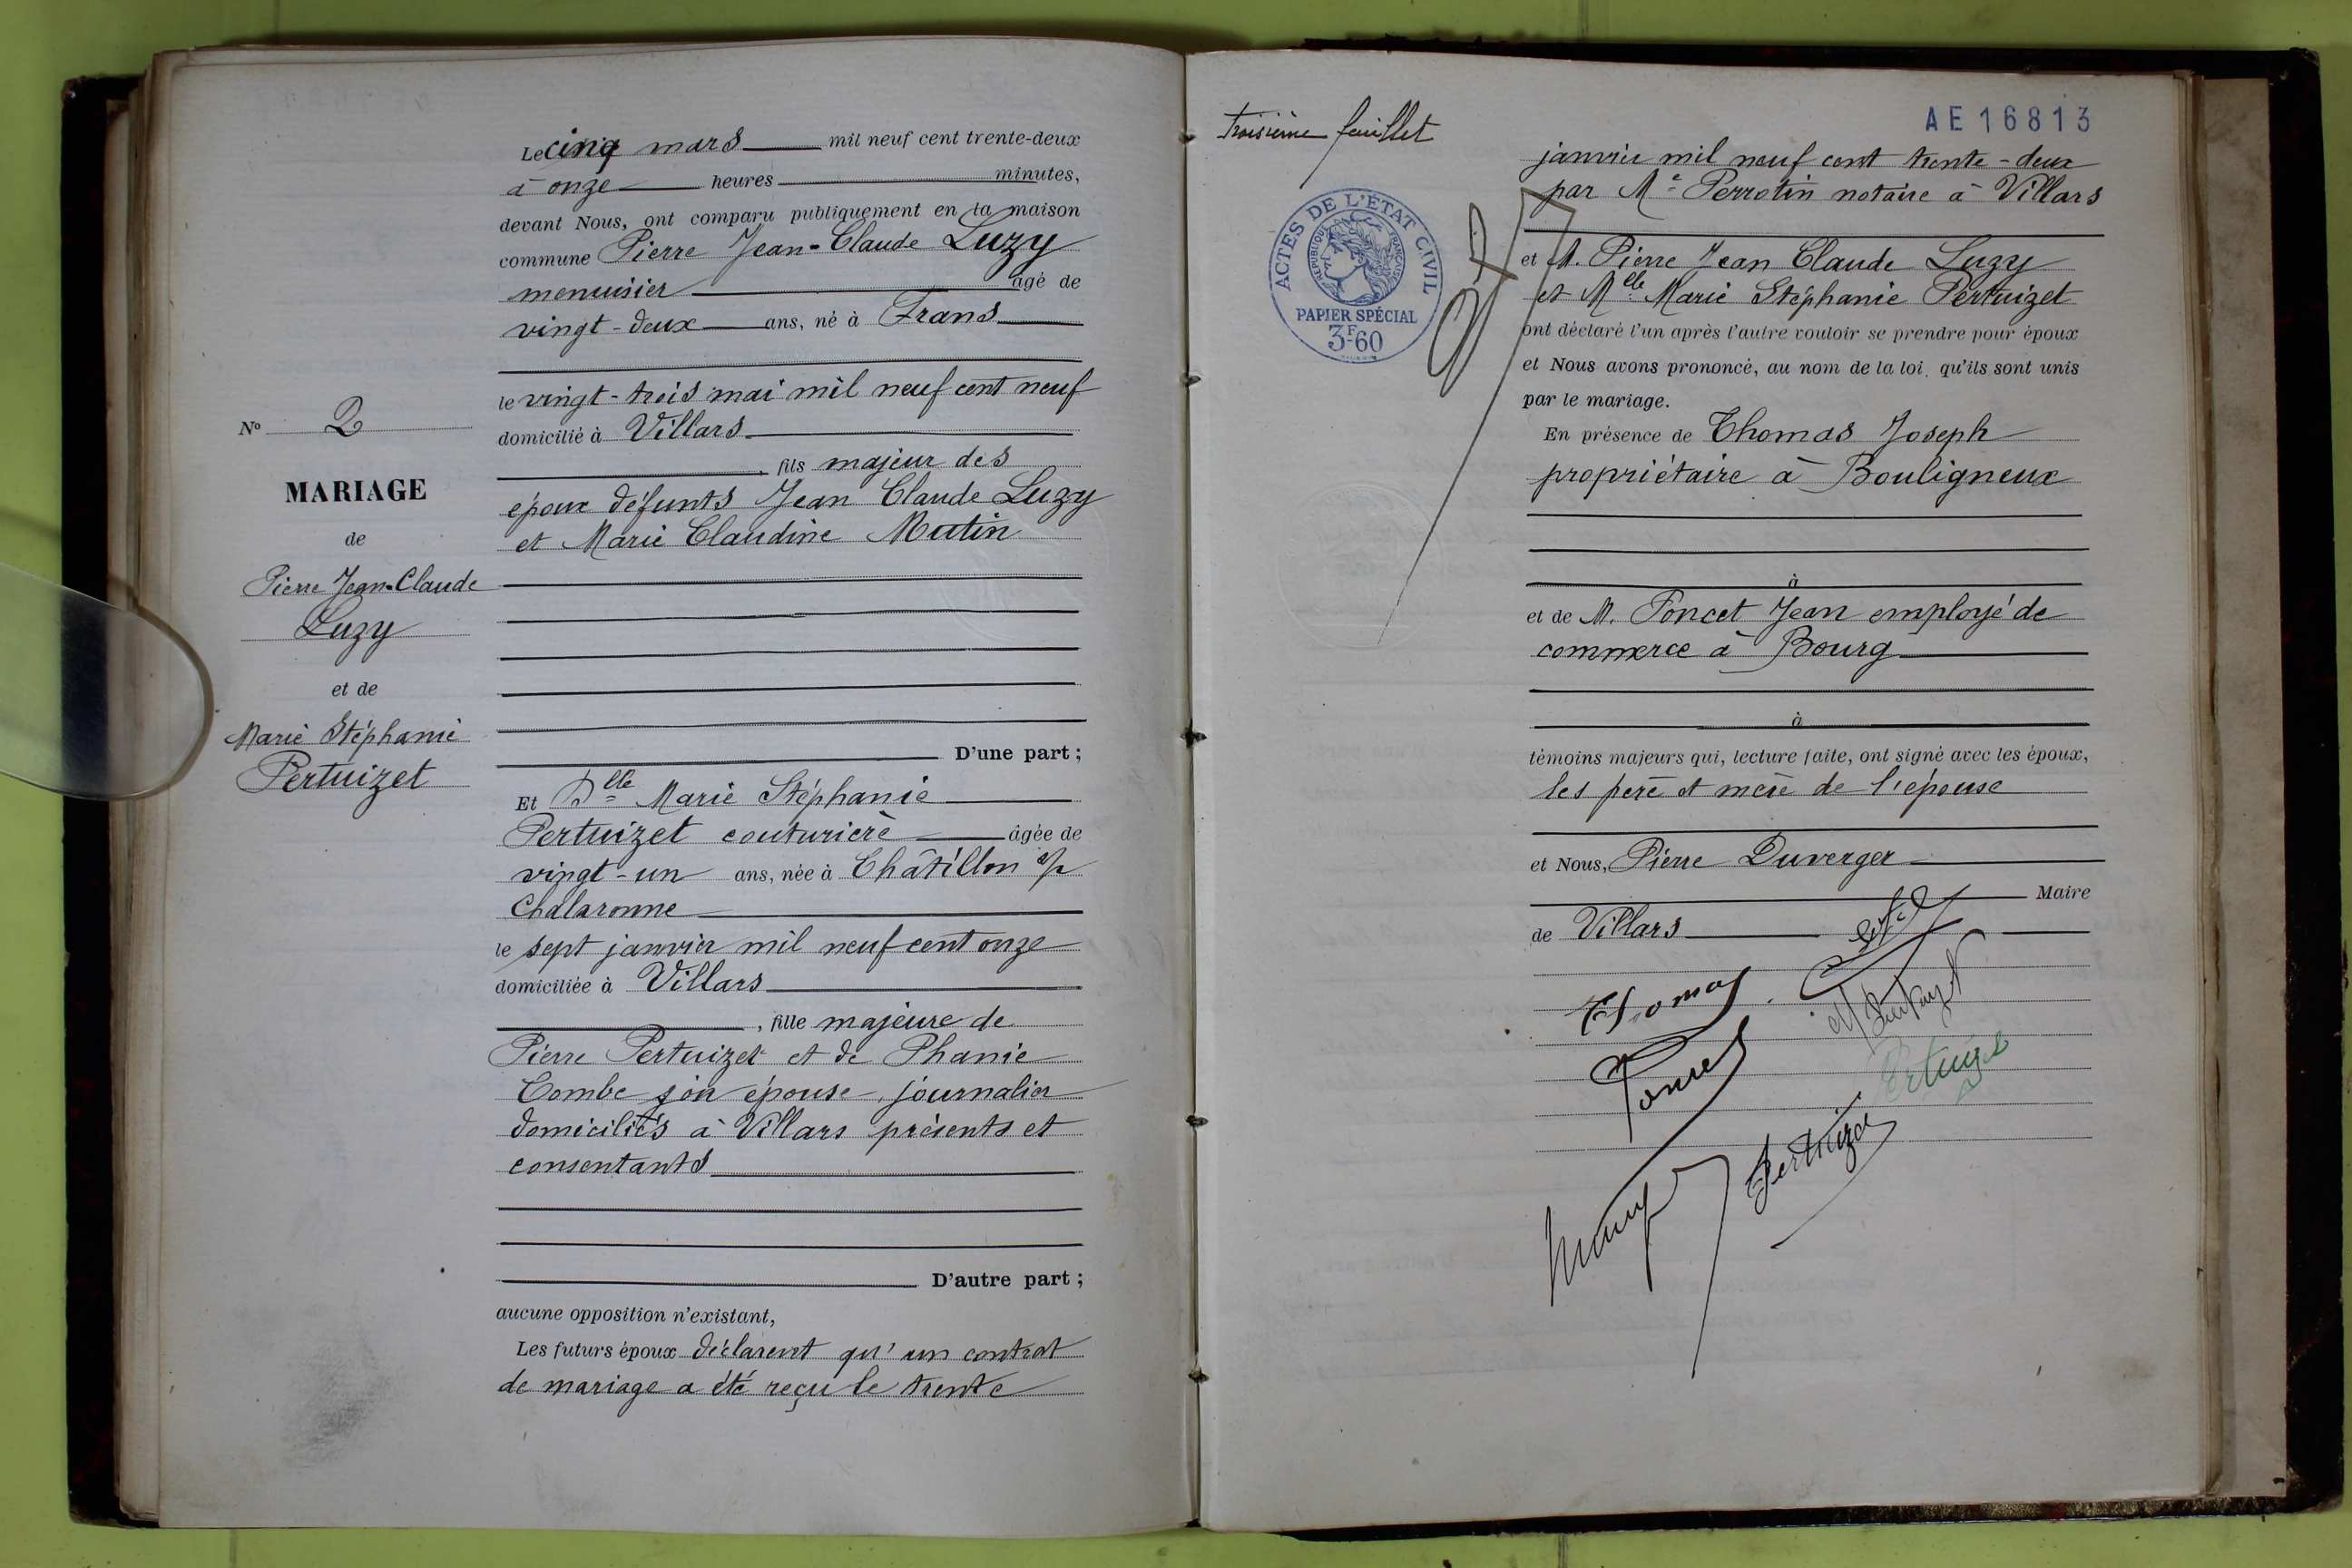 Le cinq mars mil neuf cent trente-deux
à onze heures minutes,
devant Nous, ont comparu publiquement en la maison
commune Pierre Jean-Claude Luzy
menuisier âgé de
vingt-deux ans, né à Frans
le vingt-trois mai mil neuf cent neuf
domicilié à Villars
fils majeur des
époux défunts Jean Claude Luzy
et Marie Claudine Mutin
D'une part ;
Et Dlle Marie Stéphanie
Pertuizet couturière âgée de
vingt-un ans, née à Châtillon s/
Chalaronne
le sept janvier mil neuf cent onze
domiciliée à Villars
, fille majeure de
Pierre Pertuizet et de Phanie
Combe son épouse, journalier
domiciliés à Villars présents et
consentants
D'autre part ;
aucune opposition n'existant,
Les futurs époux déclarent qu'un contrat
de mariage a été reçu le trente
No 2
MARIAGE
de
Pierre Jean-Claude
Luzy
et de
Marie Stéphanie
Pertuizet
troisième feuillet
AE16813
ACTES DE L'ÉTAT CIVIL
RÉPUBLIQUE FRANÇAISE
PAPIER SPÉCIAL
3F60
janvier mil neuf cent trente-deux
par Me Perrotin notaire à Villars
et M. Pierre Jean Claude Luzy
et Mlle Marie Stéphanie Pertuizet
ont déclaré l'un après l'autre vouloir se prendre pour époux
et Nous avons prononcé, au nom de la loi, qu'ils sont unis
par le mariage.
En présence de Thomas Joseph
propriétaire à Bouligneux
à
et de M. Poncet Jean employé de
commerce à Bourg
à
témoins majeurs qui, lecture faite, ont signé avec les époux,
les père et mère de l'épouse
et Nous, Pierre Duverger
Maire
de Villars
Thomas
Poncet
Pertuizet
Pertuizet